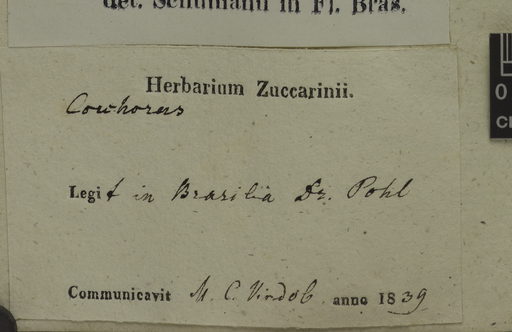 det. Schumann in Fl. Bras.
Herbarium Zuccarinii.
Corchorus
Legit in Brasilia Dr. Pohl
Communicavit M. C. Vindob. anno 1839
0